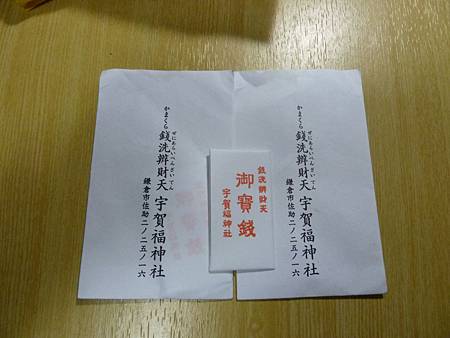 かまくら 銭洗辨財天 宇賀福神社
ぜにあらいべんざいてん
鎌倉市佐助二ノ二五ノ一六
銭洗辨財天
御寶銭
宇賀福神社
かまくら 銭洗辨財天 宇賀福神社
ぜにあらいべんざいてん
鎌倉市佐助二ノ二五ノ一六